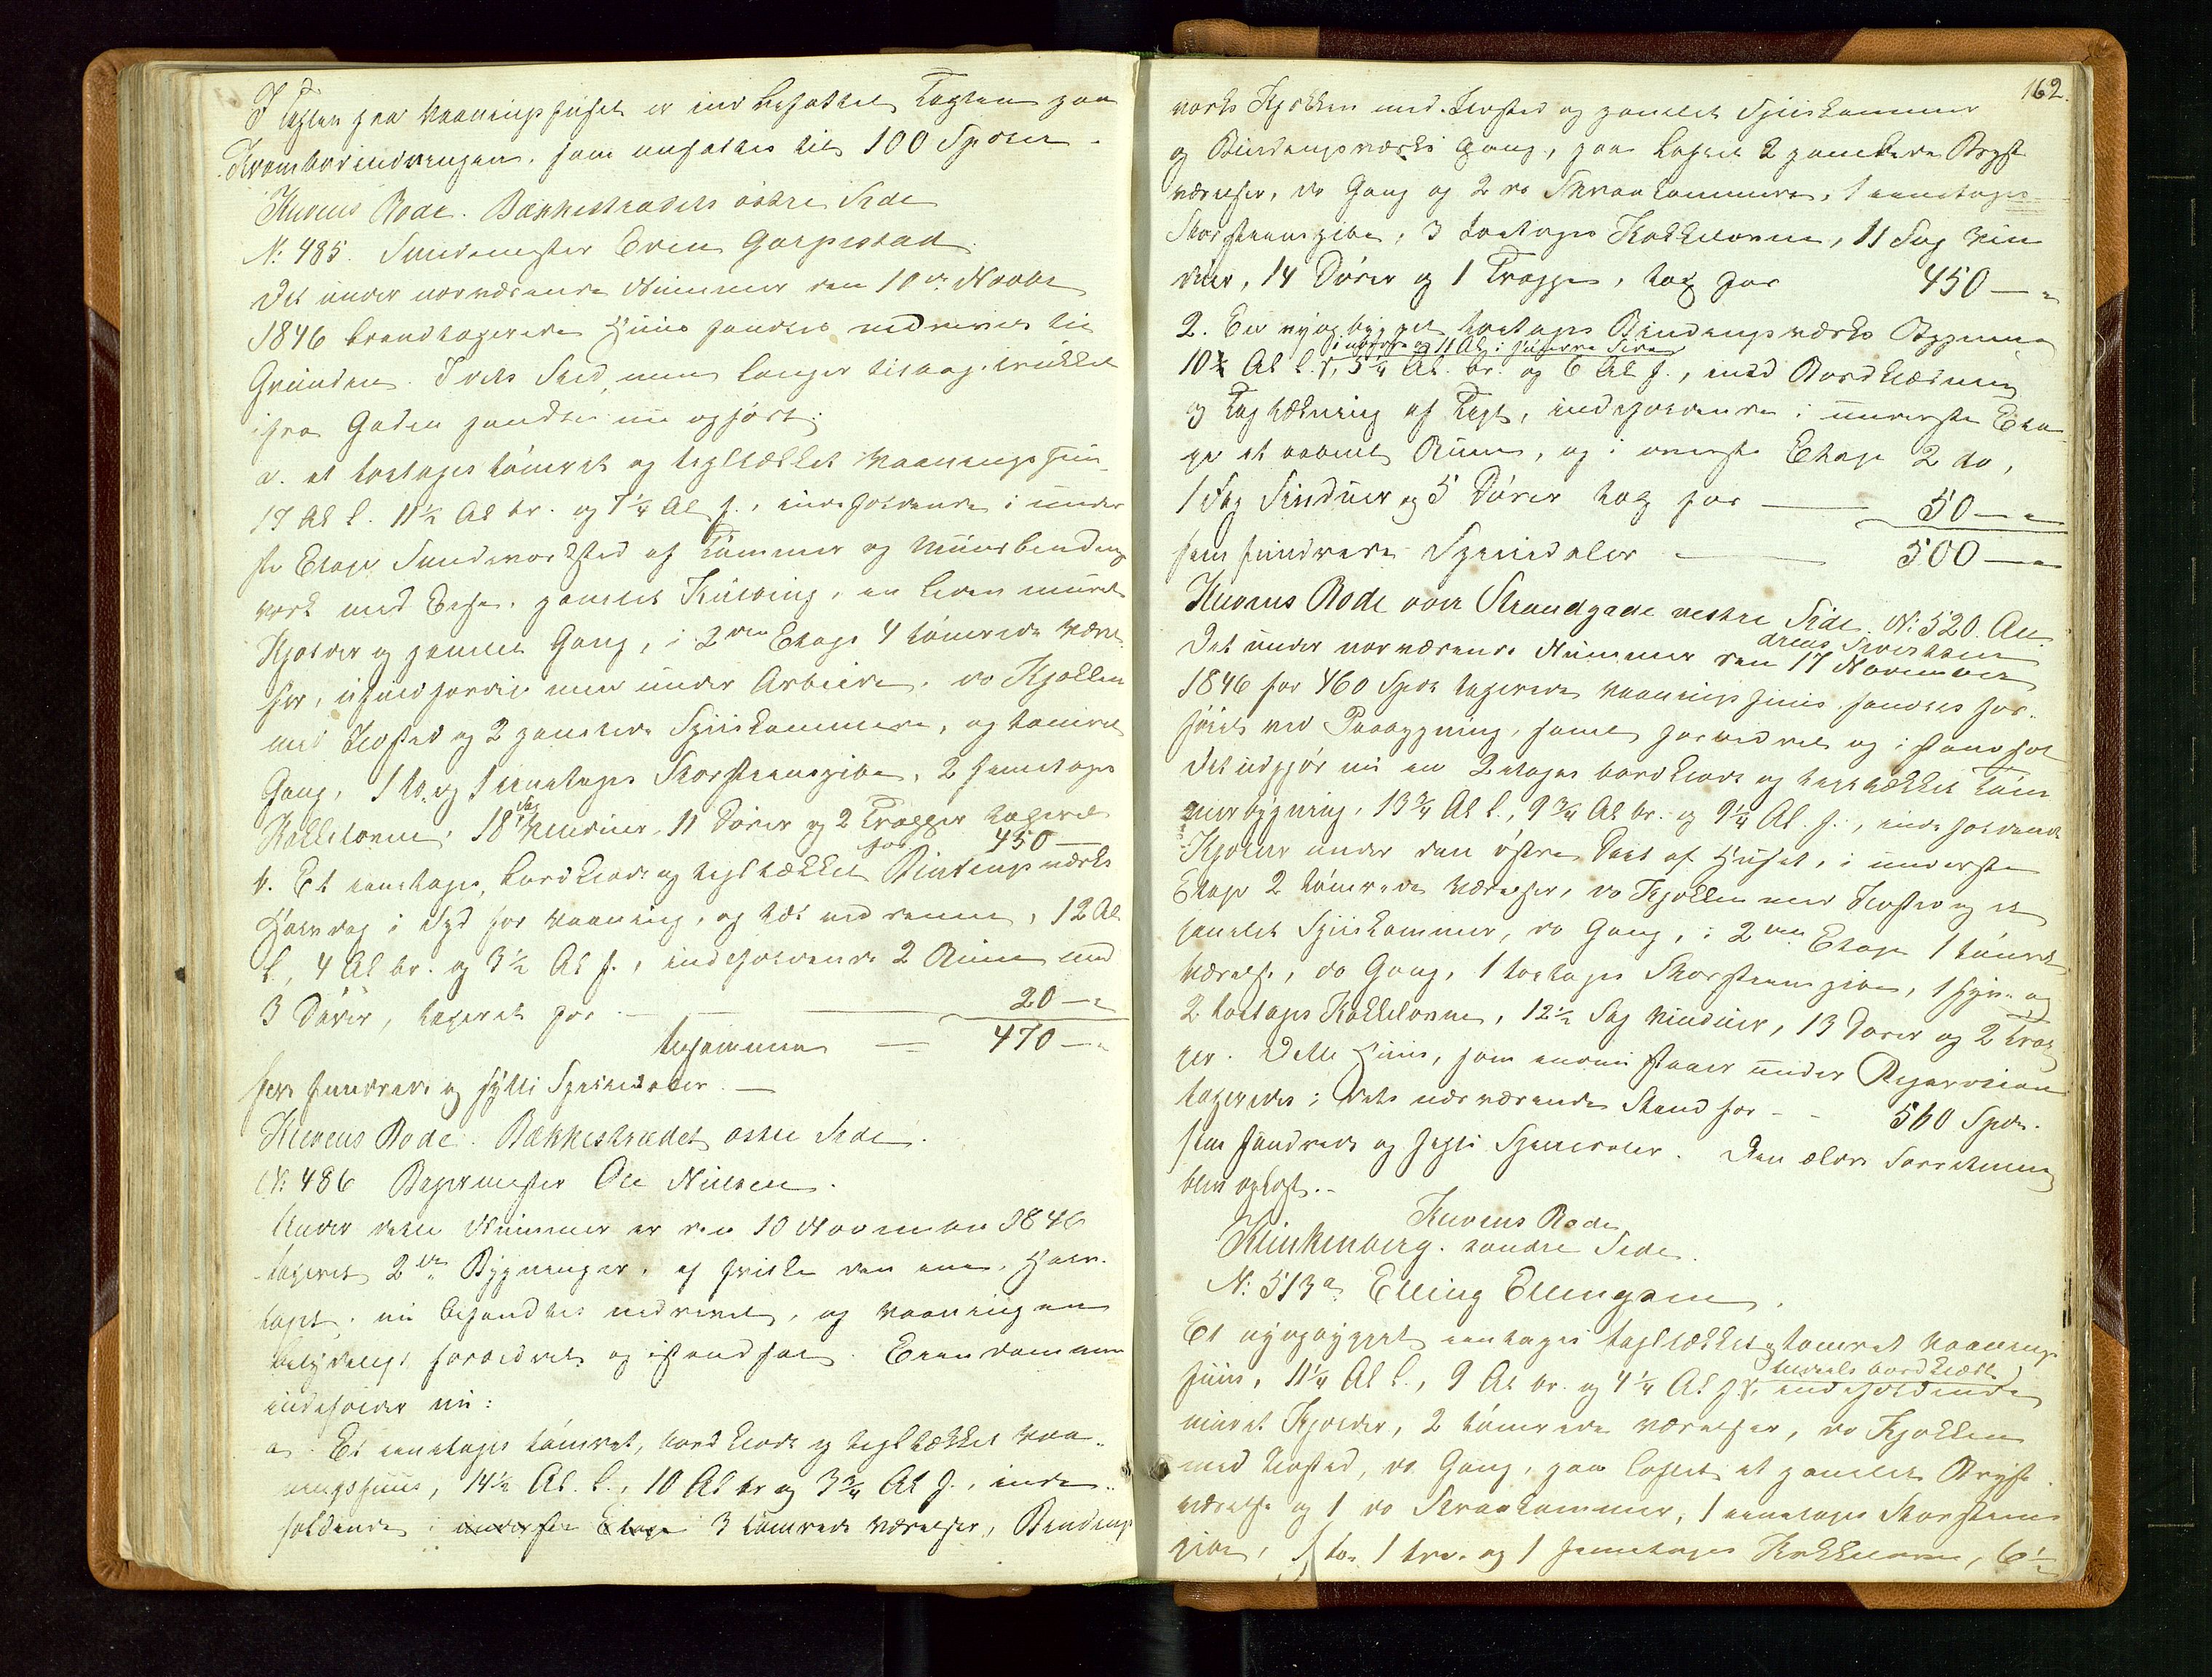 I Taxten for Vaaningshuset er indbefattet Taxten paa
Krambodindretningen, som ansattes til 100 Spdlr.
Kuvens Rode. Bakkestrædets østre Side
N: 485. Smedemester Sven Gaupestad.
Det under nærværende Nummer den 10de Novbr
1846 brandtaxerede Huus fandtes nedrevet til
Grunden. I dets Sted, men længer tilbagetrukket
fra Gaden fandtes nu opført:
a. et toetages tømret og tegltækket Vaaningshuus
17 Al. l. 11½ Al br. og 7¼ Al h., indeholdende i under-
ste Etage Smedeværksted af Tømmer og Muurbindings-
værk med Esse, panelet Kulbing, en liden muret
Kjelder og panelet Gang, i 2den Etage 4 tømrede Værel-
ser, ufuldførdte men under Arbeide, do Kjøkken
med Ildsted og 2 panelede Spiiskammere, og tømret
Gang, 1 to og 1 eenetages Skorsteenspibe, 2 fleeretages
Kakkelovne, 18 Fag Vinduer, 11 Dører og 2 Trapper taxeret
for 450 —
b. Et eenetages, bordklædt og tegltækket Bindingsværks
Halvtag i Syd for Vaaning, og tæt ved samme, 12 Al
l., 4 Al br. og 3½ Al h., indeholdende 2 Rum med
3 Dører, taxeret for — 20 —
tilsammen — 470 —
fire hundrede og sytti Speciedaler. —
Kuvens Rode. Bakkestrædet østre Side.
N: 486 Bagermester Ole Nielsen.
Under dette Nummer er den 10 November 1846
taxeret 2de Bygninger, af hvilke den ene, Halv-
taget, nu befandtes nedrevet, og Vaaningen
betydelig forbedret og istandsat. Eiendommen
indeholder nu:
a. Et eenetages tømret, bordklædt og tegltækket Vaa-
ningshuus, 14½ Al. l., 10 Al br og 3¾ Al h., inde-
holdende i underste Etage 3 tømrede Værelser, Bindings-
162.
værks Kjøkken med Ildsted og panelet Spiiskammer
og Bindingsværks Gang, paa Loftet 2 panelede Bryst-
værelser, do Gang og 2 do Skraakammere, 1 eenetages
Skorsteenspibe, 3 toetages Kakkelovne, 11 Fag Vin-
duer, 14 Dører og 1 Trappe, tax for 450 —
2. En nyopbygget toetages Bindingsværks Bygning
i nordre og 11 Al i søndre Side
10¾ Al l., 5¼ Al. br. og 6 Al h., med Bordklædning
og Tagtækning af Tegl, indeholdende i underste Eta-
ge et aabent Rum, og i øverste Etage 2 do,
1 Fag Vinduer og 5 Dører tax for — 50 —
fem hundrede Speciedaler — 500 —
Kuvens Rode øvre Strandgade vestre Side. N: 520. An-
dreas Sivertsen
Det under nærværende Nummer den 17 November
1846 for 460 Spdr taxerede Vaaningshuus fandtes for-
høiet ved Paabygning, samt forbedret og istandsat
Det udgjør nu en 2etages bordklædt og tegltækket Tøm-
merbygning, 13¾ Al l., 9¾ Al br. og 9¼ Al. h., indeholdende
Kjelder under den østre Deel af Huset, i underste
Etage 2 tømrede Værelser, do Kjøkken med Ildsted og et
panelet Spiiskammer, do Gang, i 2den Etage 1 tømret
Værelse, do Gang, 1 toetages Skorsteenspibe, 1 fyr- og
2 toetages Kakkelovne, 12½ Fag Vinduer, 13 Dører og 2 Trap-
per. Dette Huus, som endnu staaer under Reparation
taxeredes i dets nærværende Stand for - - 560 Spdr.
fem hundrede og sexti Speciedaler. Den ældre Forretning
blev ophævet. -
Kuvens Rode
Klinkenberg. søndre Side.
N: 513a. Elling Ellingsen.
Et nyopbygget eenetages tegltækket og tømret Vaanings-
huus, 11¼ Al l., 9 Al br. og 4¼ Al h., tildeels bordklædt indeholdende
muret Kjelder, 2 tømrede Værelser, do Kjøkken
med Ildsted, do Gang, paa Loftet et panelet Bryst-
værelse og 1 do Skraakammer, 1 eenetages Skorsteens-
pibe, 1 to- 1 tre- og 1 fleeretages Kakkelovne, 6½